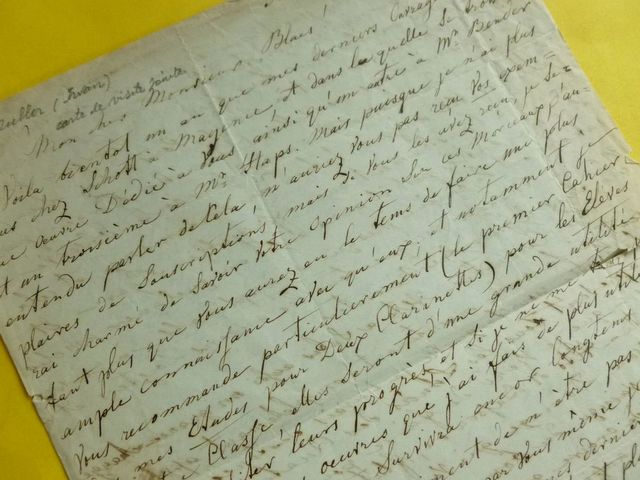 Muller (Iwan)
carte de visite jointe
Mon cher Monsieur Blaes!
Voila bientot un an que mes derniers Ouvrag
chez Schott à Mayence et dans laquelle se trou
œuvre Dédié a Vous ainsi qu'un autre à Mr Bender
et un troisième à Mr Haps. Mais puisque je n'ai plus
entendu parler de Cela, n'auriez Vous pas recu Vos exem-
plaires de Souscriptions, mais si Vous les avez reçus, je Se-
rai charmé de savoir Votre opinion Sur ces Morceaux d'au-
tant plus que Vous aurez eu le tems de faire une plus
ample connaissance avec qu'eux, et notamment je
Vous recommande particulièrement (le premier Cahier
mes Etudes pour Deux Clarinettes) pour les Elèves
Classe, elles seront d'une grande utilité
leurs progrès, et si je ne me
oeuvres que j'ai fais de plus util
Survivra encor longtems
de n'être pas
par Vous même
dernier